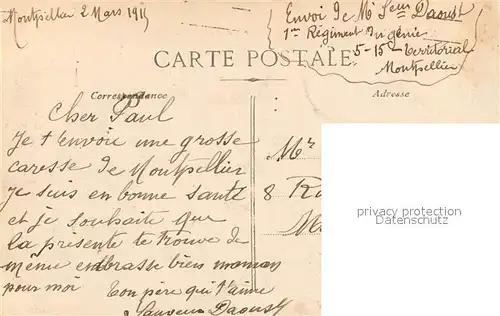 Montpellier 2 Mars 1915
Envoi de Mr Daoust
1er Régiment du génie
5-15- territorial
Montpellier
CARTE POSTALE
Correspondance
Adresse
Cher Paul
Je t'envoie une grosse
caresse de Montpellier
je suis en bonne santé
et je souhaite que
la présente te trouve de
même embrasse bien maman
pour moi
ton père qui t'aime
Daoust
Mr
8
privacy protection
www.delcampe.net